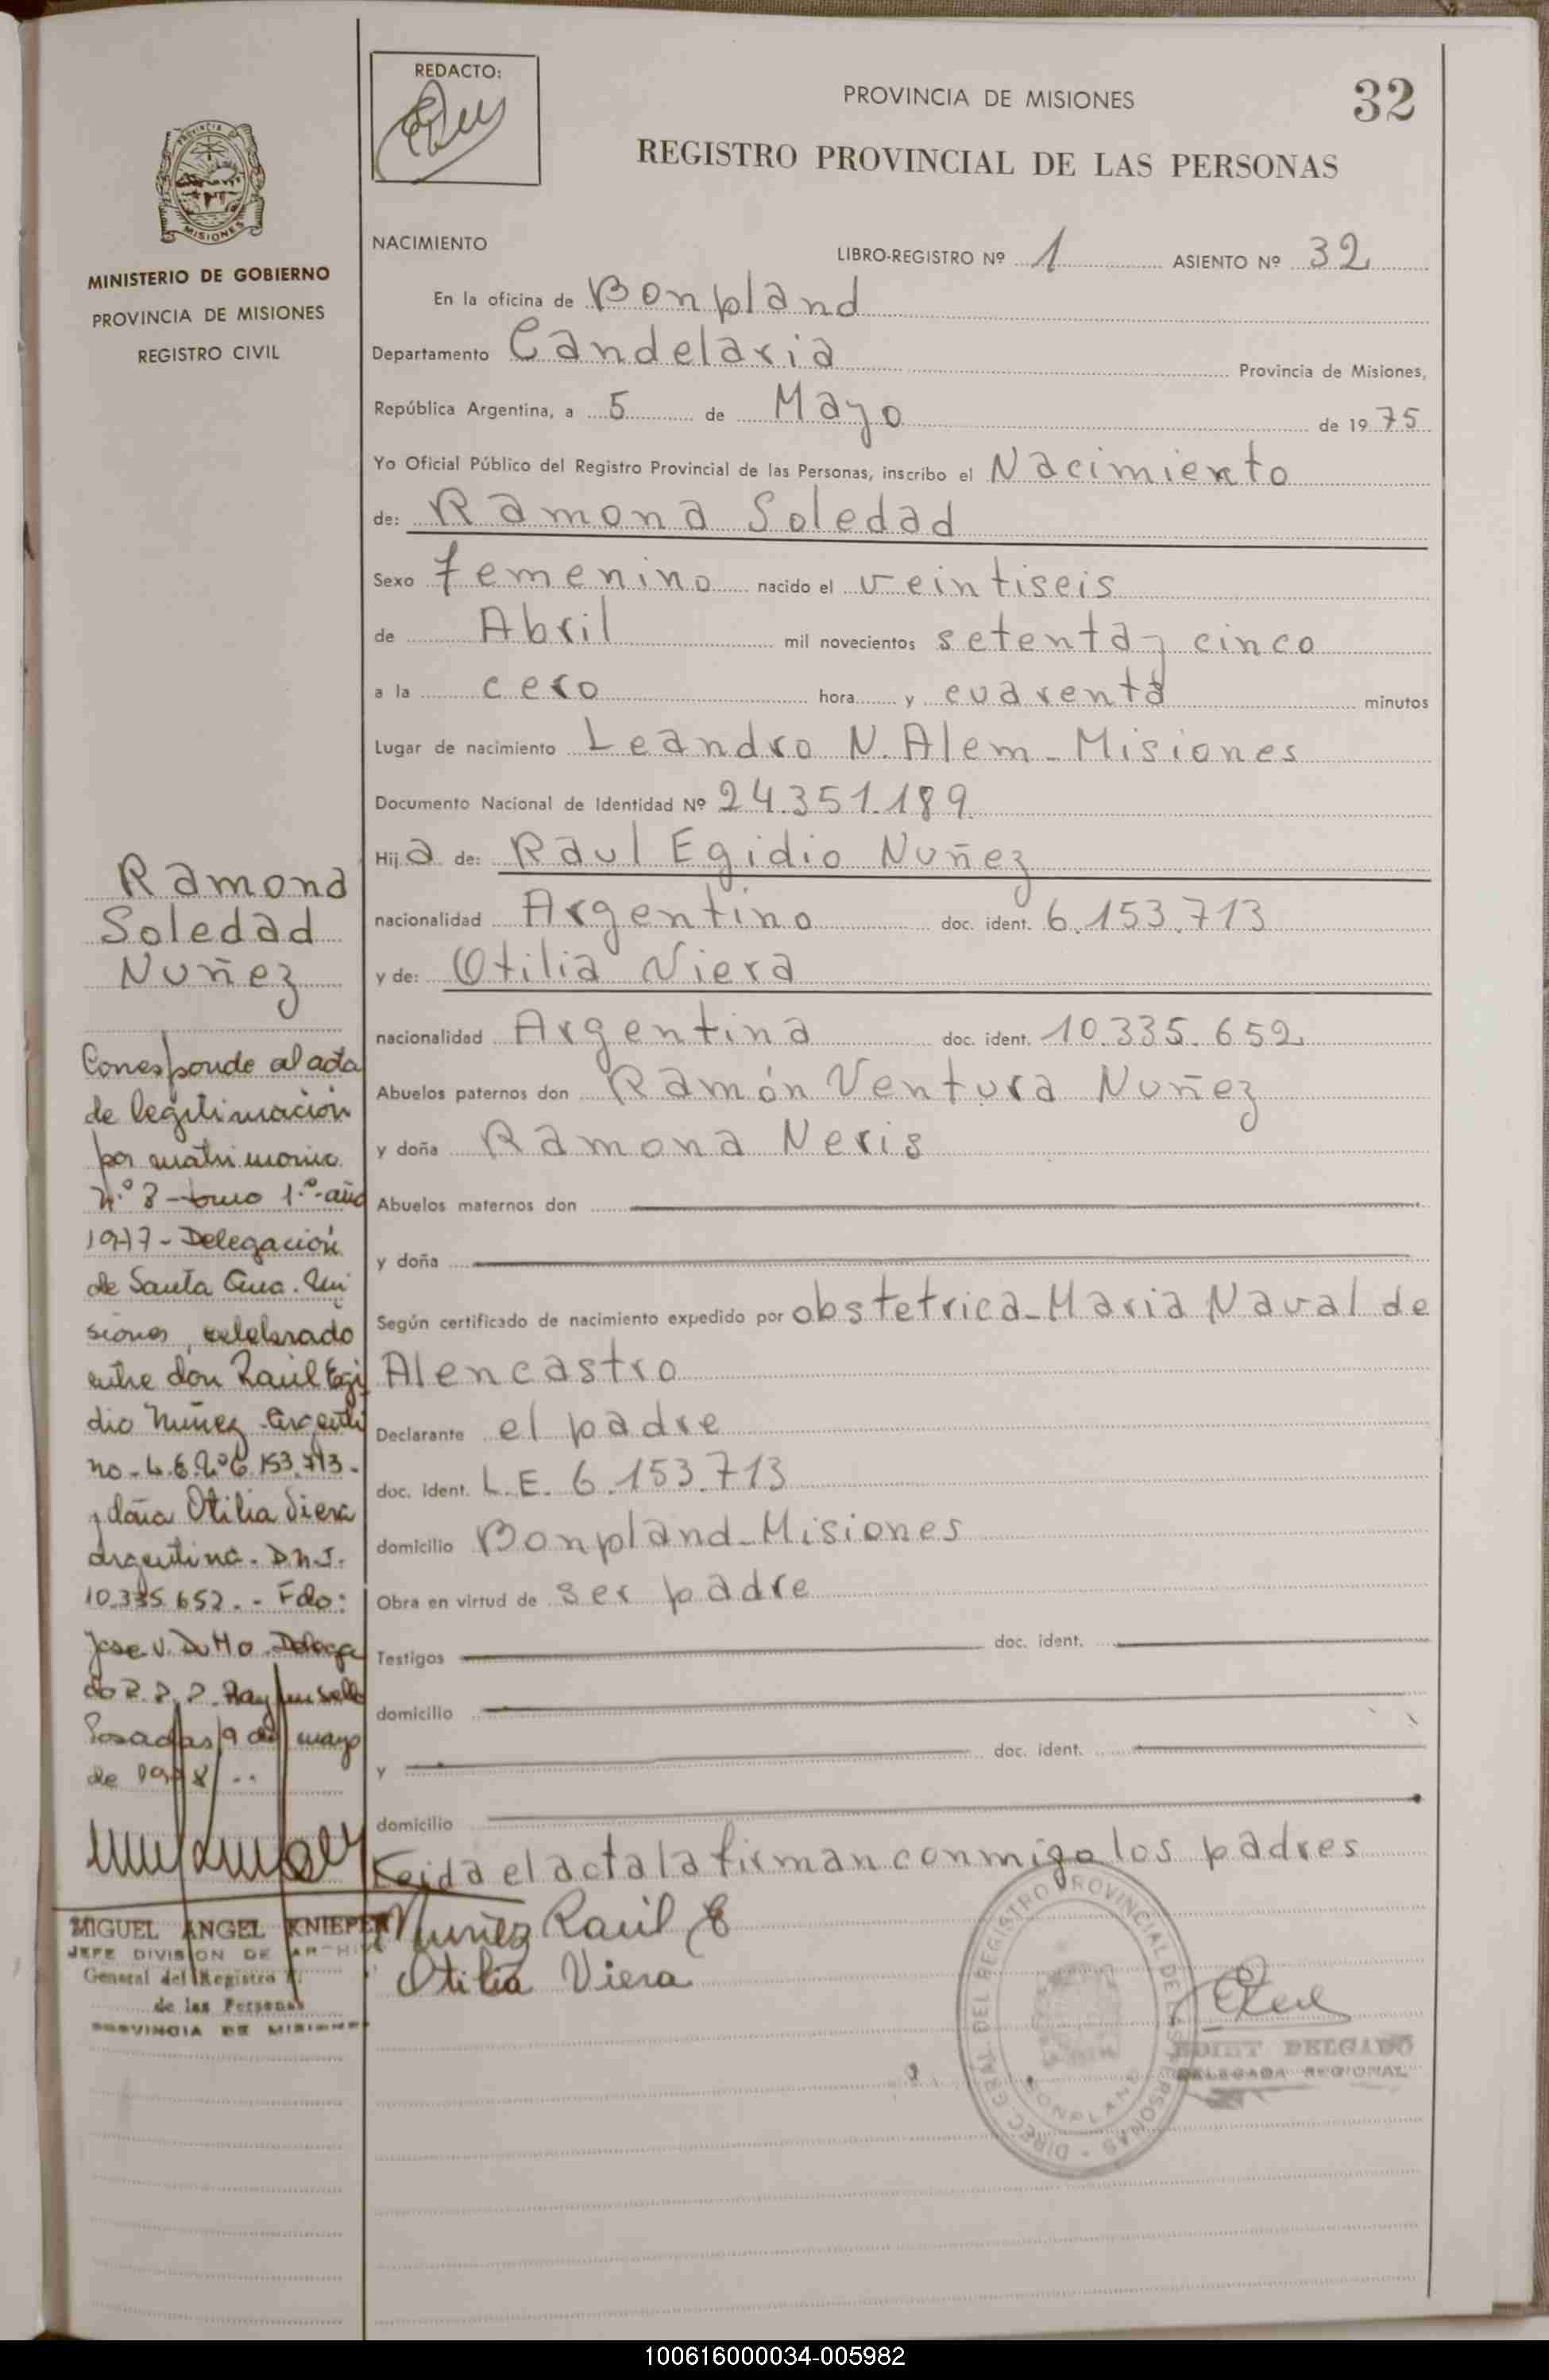 REDACTO:
PROVINCIA DE MISIONES
32
REGISTRO PROVINCIAL DE LAS PERSONAS
PROVINCIA
MISIONES
MINISTERIO DE GOBIERNO
PROVINCIA DE MISIONES
REGISTRO CIVIL
NACIMIENTO
LIBRO-REGISTRO Nº 1 ASIENTO Nº 32
En la oficina de Bonpland
Departamento Candelaria Provincia de Misiones,
República Argentina, a 5 de Mayo de 1975
Yo Oficial Público del Registro Provincial de las Personas, inscribo el Nacimiento
de: Ramona Soledad
Sexo Femenino nacido el veintiseis
de Abril mil novecientos setenta y cinco
a la cero hora y cuarenta minutos
Lugar de nacimiento Leandro N. Alem - Misiones
Documento Nacional de Identidad Nº 24.351.189
Hija de: Raul Egidio Nuñez
nacionalidad Argentino doc. ident. 6.153.713
y de: Otilia Viera
nacionalidad Argentina doc. ident. 10.335.652
Abuelos paternos don Ramón Ventura Nuñez
y doña Ramona Neris
Abuelos maternos don
y doña
Según certificado de nacimiento expedido por obstetrica - Maria Naval de
Alencastro
Declarante el padre
doc. ident. L.E. 6.153.713
domicilio Bonpland - Misiones
Obra en virtud de ser padre
Testigos doc. ident.
domicilio
y doc. ident.
domicilio
Leida el acta la firman conmigo los padres
Nuñez Raúl E
Otilia Viera
Ramona
Soledad
Nuñez
Corresponde al acta
de legitimación
por matrimonio
N.º 8 - tomo 1.º - año
1977 - Delegación
de Santa Ana. Mi
siones, celebrado
entre don Raúl Egi
dio Nuñez - Argenti
no - L.E. Nº 6.153.713 -
y doña Otilia Viera
argentina. D.N.I.
10.335.652. - Fdo:
Jose V. Delega
do R.P.P. Hay un sello
Posadas, 9 de mayo
de 1978
MIGUEL ANGEL KNIEPER
JEFE DIVISION DE ARCHIVO
General del Registro P.
de las Personas
PROVINCIA DE MISIONES
DIREC. GRAL. DEL REGISTRO PROVINCIAL DE LAS PERSONAS -
BONPLAND
DELGADO
DELEGADA REGIONAL
100616000034-005982